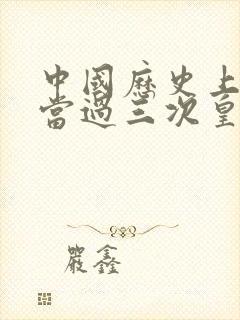 中國歷史上
當過三次皇
嚴鑫